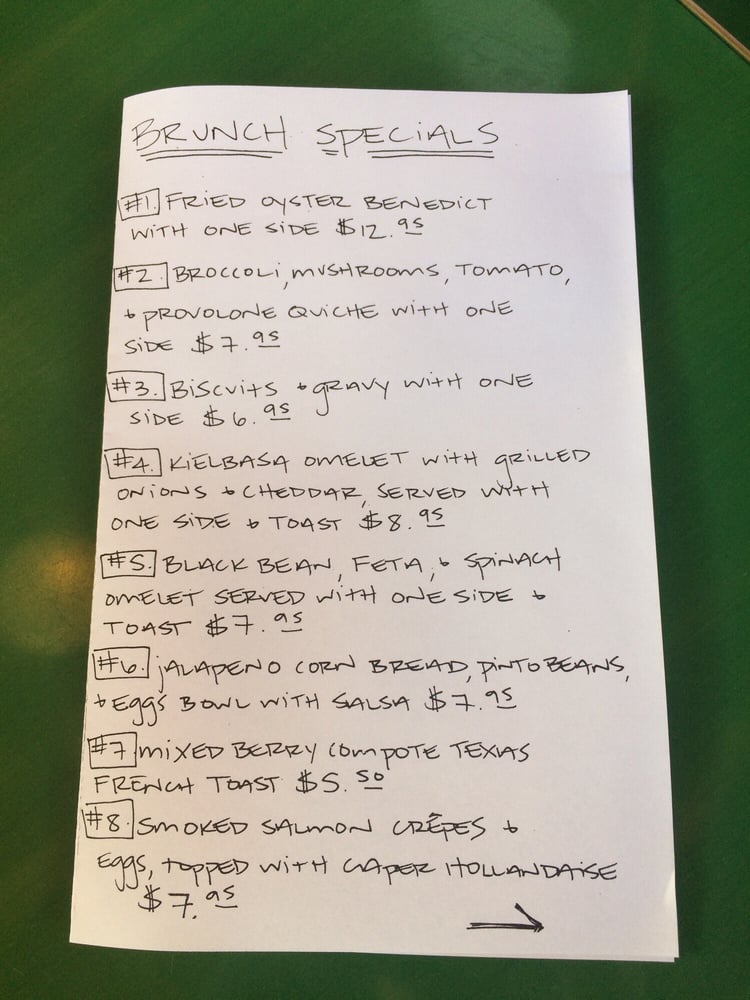 BRUNCH SPECIALS
#1. FRIED OYSTER BENEDICT
WITH ONE SIDE $12.95
#2. BROCCOLI, MUSHROOMS, TOMATO,
& PROVOLONE QUICHE WITH ONE
SIDE $7.95
#3. BISCUITS & GRAVY WITH ONE
SIDE $6.95
#4. KIELBASA OMELET WITH GRILLED
ONIONS & CHEDDAR, SERVED WITH
ONE SIDE & TOAST $8.95
#5. BLACK BEAN, FETA, & SPINACH
OMELET SERVED WITH ONE SIDE &
TOAST $7.95
#6. JALAPENO CORN BREAD, PINTO BEANS,
& EGGS BOWL WITH SALSA $7.95
#7 MIXED BERRY COMPOTE TEXAS
FRENCH TOAST $5.50
#8. SMOKED SALMON CRÊPES &
EGGS, TOPPED WITH CAPER HOLLANDAISE
$7.95